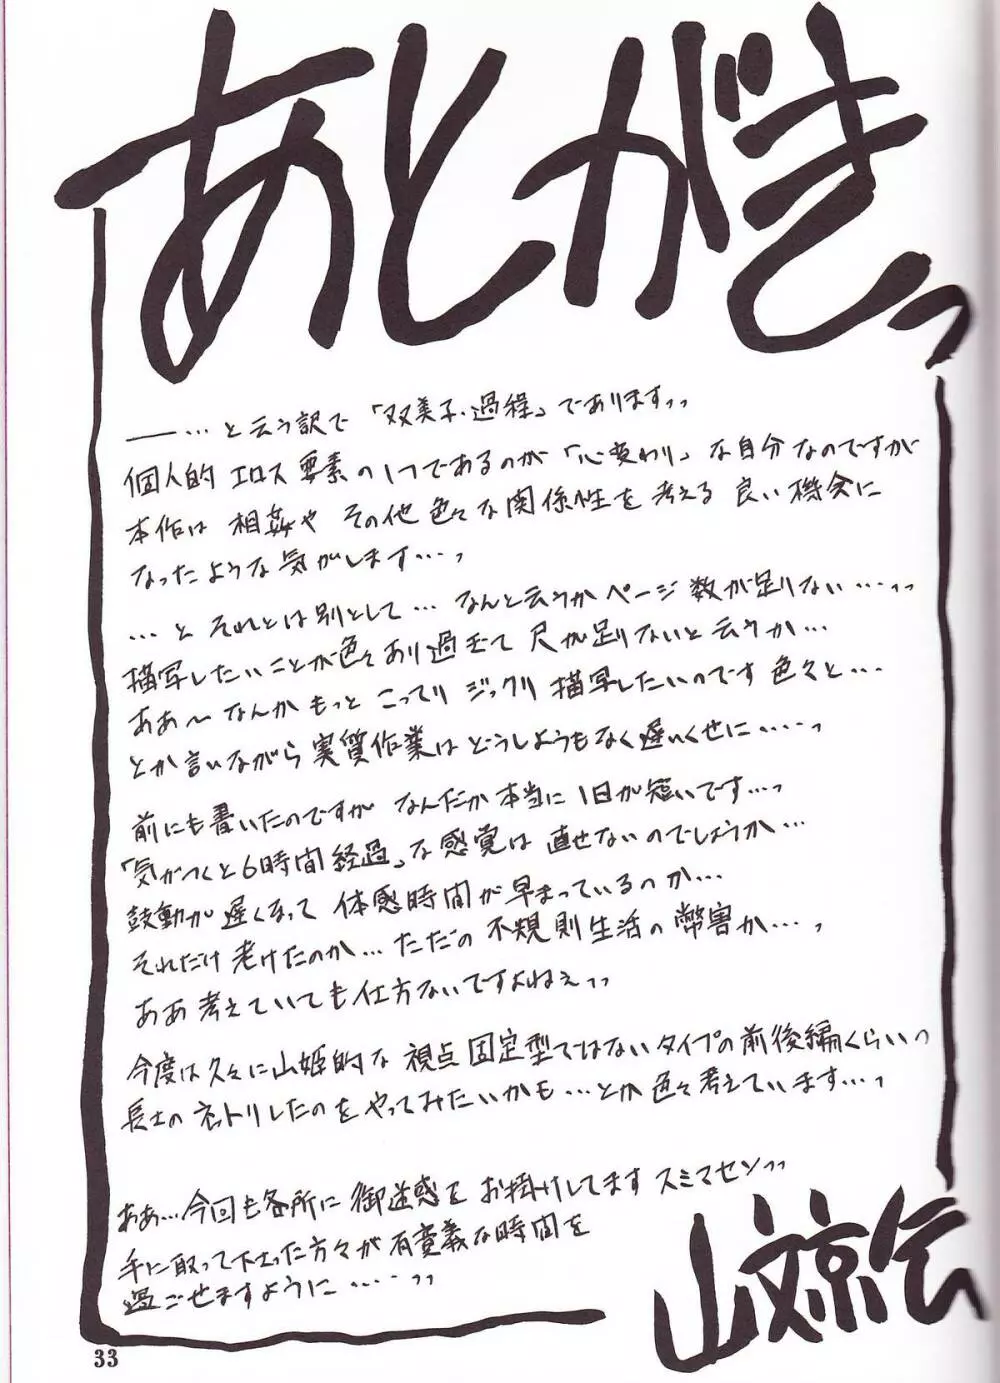 あとがきっ
――…と云う訳で「双美子・過程」でありますッッ
個人的エロス要素の1つであるのが「心変わり」な自分なのですが
本作は相姦やその他色々な関係性を考える良い機会に
なったような気がします…ッ
…とそれとは別として…なんと云うかページ数が足りない…ッッ
描写したいことが色々あり過ぎて尺が足りないと云うか…
ああ〜なんかもっとこってりジックリ描写したいのです色々と…
とか言いながら実質作業はどうしようもなく遅いくせに……ッ
前にも書いたのですがなんだか本当に1日が短いです…ッ
「気がつくと6時間経過」な感覚は直せないのでしょうか…
鼓動が遅くなって体感時間が早まっているのか…
それだけ老けたのか…ただの不規則生活の弊害か…ッ
ああ考えていても仕方ないですよねぇッッ
今度は久々に山姫的な視点固定型ではないタイプの前後編くらいっ
長士のネットリしたのをやってみたいかも…とか色々考えています…ッ
ああ…今回も各所に御迷惑をお掛けしてますスミマセンッッ
手に取って下さった方々が有意義な時間を
過ごせますように……ッッ
山文京伝
33